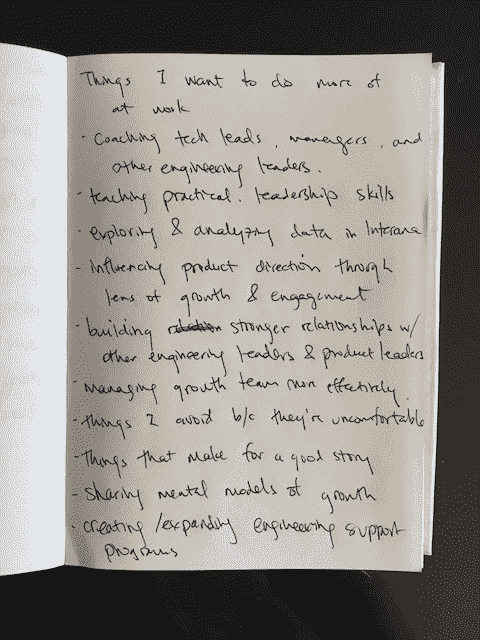 Things I want to do more of
at work
- Coaching tech leads, managers, and
other engineering leaders.
- teaching practical leadership skills
- exploring & analyzing data in Interana
- influencing product direction through
lens of growth & engagement
- building relation stronger relationships w/
other engineering leaders & product leaders
- managing growth team more effectively.
- things I avoid b/c they're uncomfortable
- Things that make for a good story
- sharing mental models of growth
- creating/expanding engineering support
programs